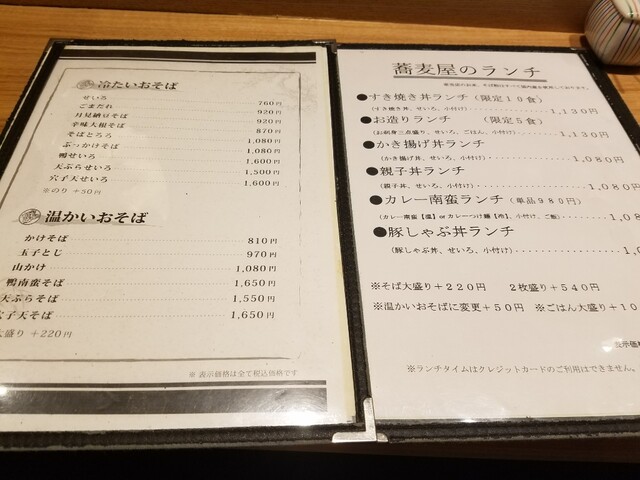 冷たいおそば
せいろ 760円
ごまだれ 920円
月見納豆そば 920円
辛味大根そば 870円
そばとろろ 1,080円
ぶっかけそば 1,080円
鴨せいろ 1,600円
天ぷらせいろ 1,500円
穴子天せいろ 1,600円
※のり +50円
温かいおそば
かけそば 810円
玉子とじ 970円
山かけ 1,080円
鴨南蛮そば 1,650円
天ぷらそば 1,550円
穴子天そば 1,650円
大盛り +220円
※ 表示価格は全て税込価格です
蕎麦屋のランチ
●すき焼き丼ランチ (限定10食)
(すき焼き丼、せいろ、小付け) 1,130円
●お造りランチ (限定5食)
(お刺身三点盛り、せいろ、ごはん、小付け) 1,130円
●かき揚げ丼ランチ
(かき揚げ丼、せいろ、小付け) 1,080円
●親子丼ランチ
(親子丼、せいろ、小付け) 1,080
●カレー南蛮ランチ (単品980円)
(カレー南蛮【温】orカレーつけ麺【冷】、小付け、ご飯)
●豚しゃぶ丼ランチ
(豚しゃぶ丼、せいろ、小付け)
※そば大盛り+220円 2枚盛り+540円
※温かいおそばに変更+50円 ※ごはん大盛り+10
表示価格
※ランチタイムはクレジットカードのご利用はできません。